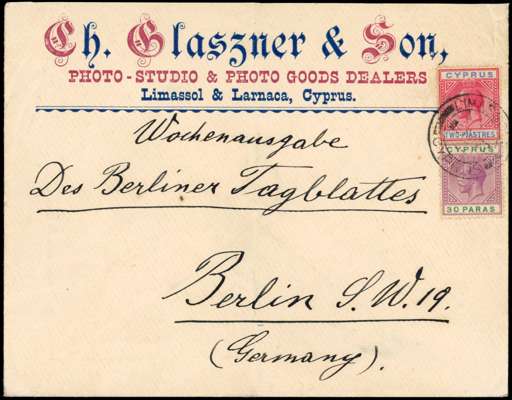 Ch. Glaszner & Son,
PHOTO-STUDIO & PHOTO GOODS DEALERS
Limassol & Larnaca, Cyprus.
CYPRUS
LIM
TWO-PIASTRES
CYPRUS
30 PARAS
Wochenausgabe
Des Berliner Tagblattes
Berlin S.W.19.
(Germany).